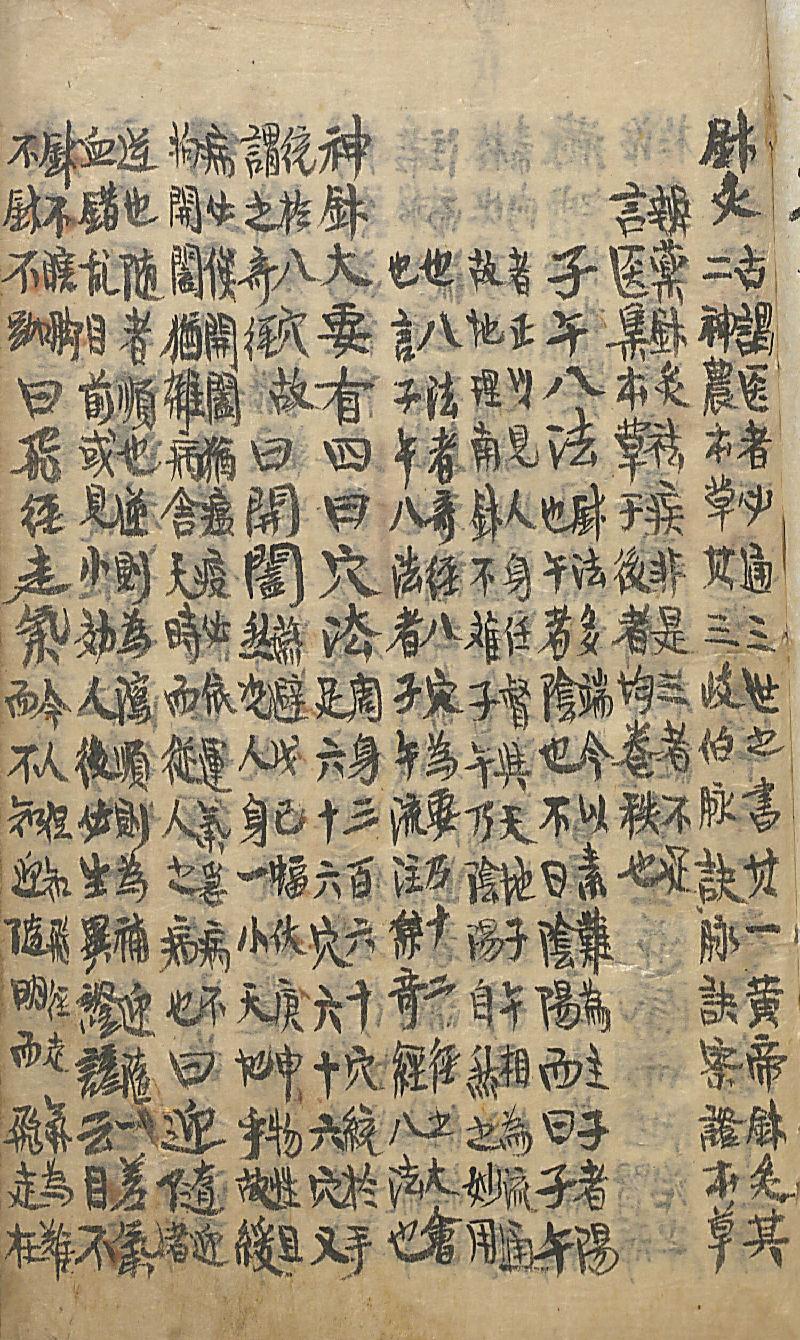 鍼灸
古謂医者必通三世之書其一黃帝鍼灸其
二神農本草其三岐伯脉訣脉訣察證本草
辨藥鍼灸祛疾非是三者不足
言医集本草于後者均卷秩也
子午八法
鍼法多端今以素難為主子者陽
也午者陰也不曰陰陽而曰子午
者正以見人身任督與天地子午相為流通
故地理南鍼不離子午乃陰陽自然之妙用
也八法者奇径八穴為要乃十二径之大會
也言子午八法者子午流注兼奇經八法也
神鍼大要有四曰穴法
周身三百六十穴統於手
足六十六穴六十六穴又
統於八穴故
謂之奇径
曰開闔
為避戊己蝠伏庚申物性且
然况人身一小天地乎故緩
病必候開闔猶瘟疫必依運氣急病不
拘開闔猶雜病舍天時而從人之病也
曰迎隨
迎
者
逆也随者順也逆則為瀉順則為補迎隨一差氣
血錯乱目前或見小効人後必生異證諺云目不
鍼不瞎脚
不鍼不跛
曰飛径走氣
今人但知飛径走氣為難
而不知迎隨明而飛走在